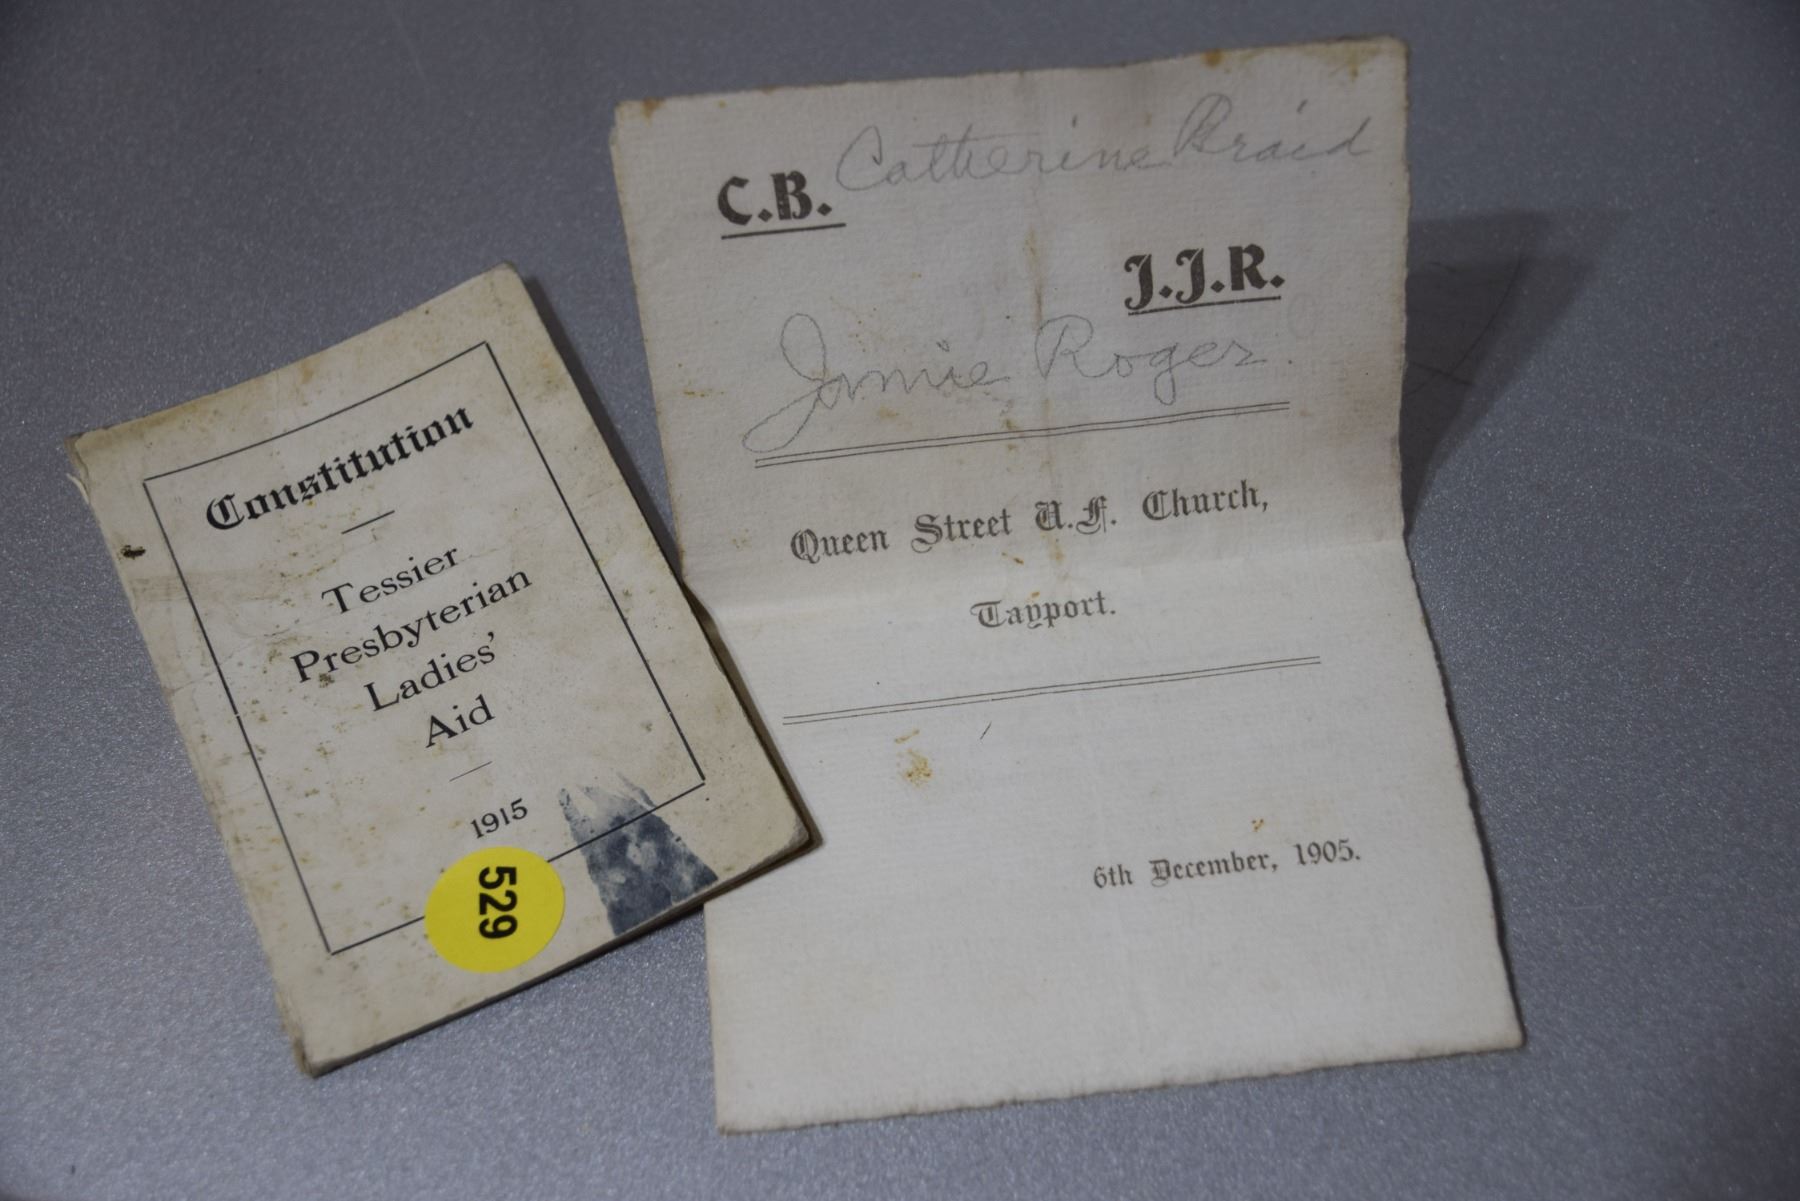 Constitution
Tessier
Presbyterian
Ladies'
Aid
1915
529
C.B. Catherine Braid
J.J.R.
Jamie Roger
Queen Street U.F. Church,
Tayport.
6th December, 1905.